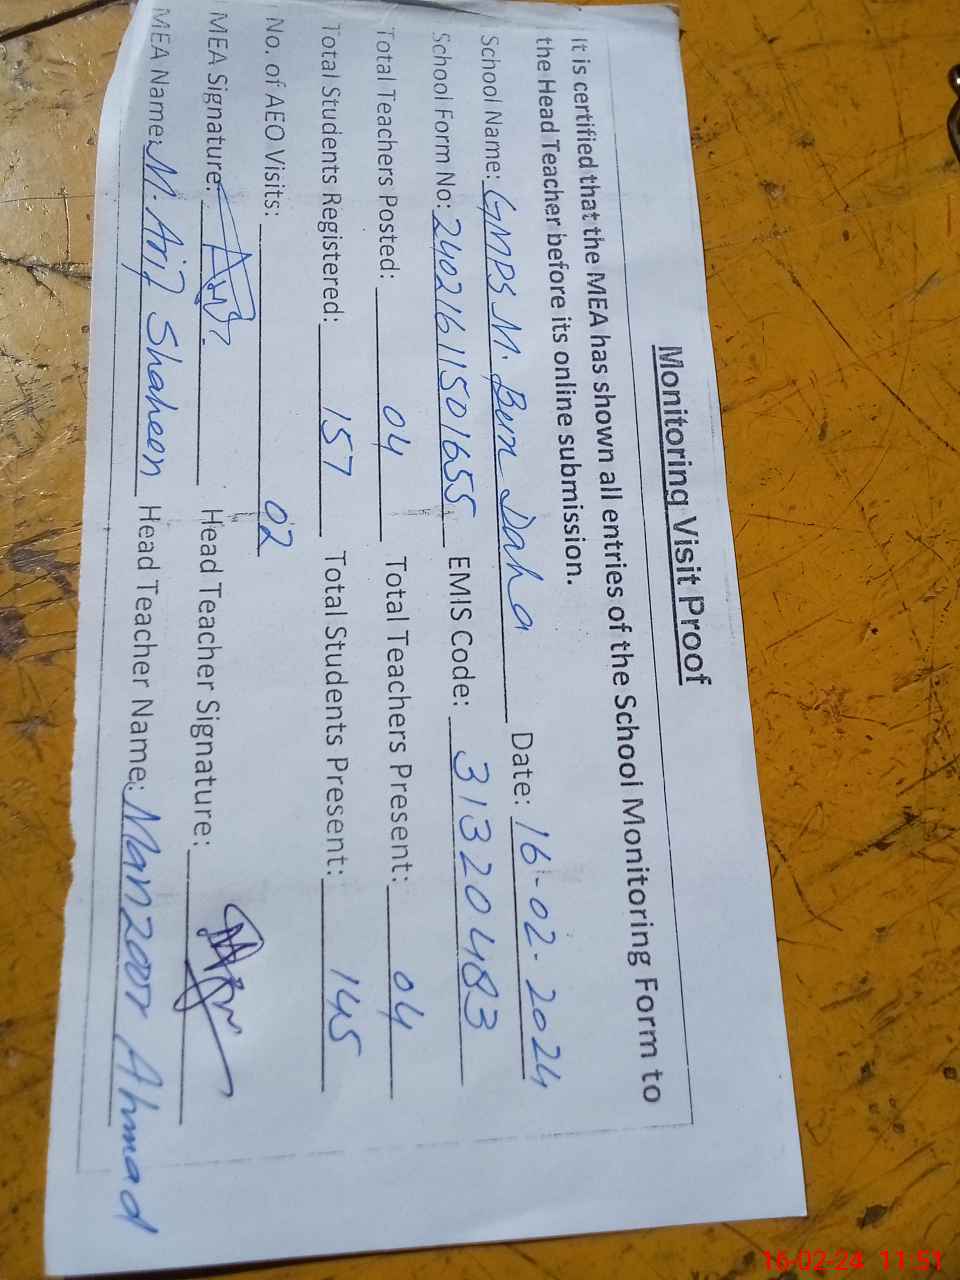 Monitoring Visit Proof
It is certified that the MEA has shown all entries of the School Monitoring Form to
the Head Teacher before its online submission.
School Name: GMPS M. Bum Daha Date: 16-02-2024
School Form No: 24021611501655 EMIS Code: 31320483
Total Teachers Posted: 04 Total Teachers Present: 04
Total Students Registered: 157 Total Students Present: 145
No. of AEO Visits: 02
MEA Signature: Head Teacher Signature:
MEA Name: M. Arif Shaheen Head Teacher Name: Manzoor Ahmad
16-02-24 11:51